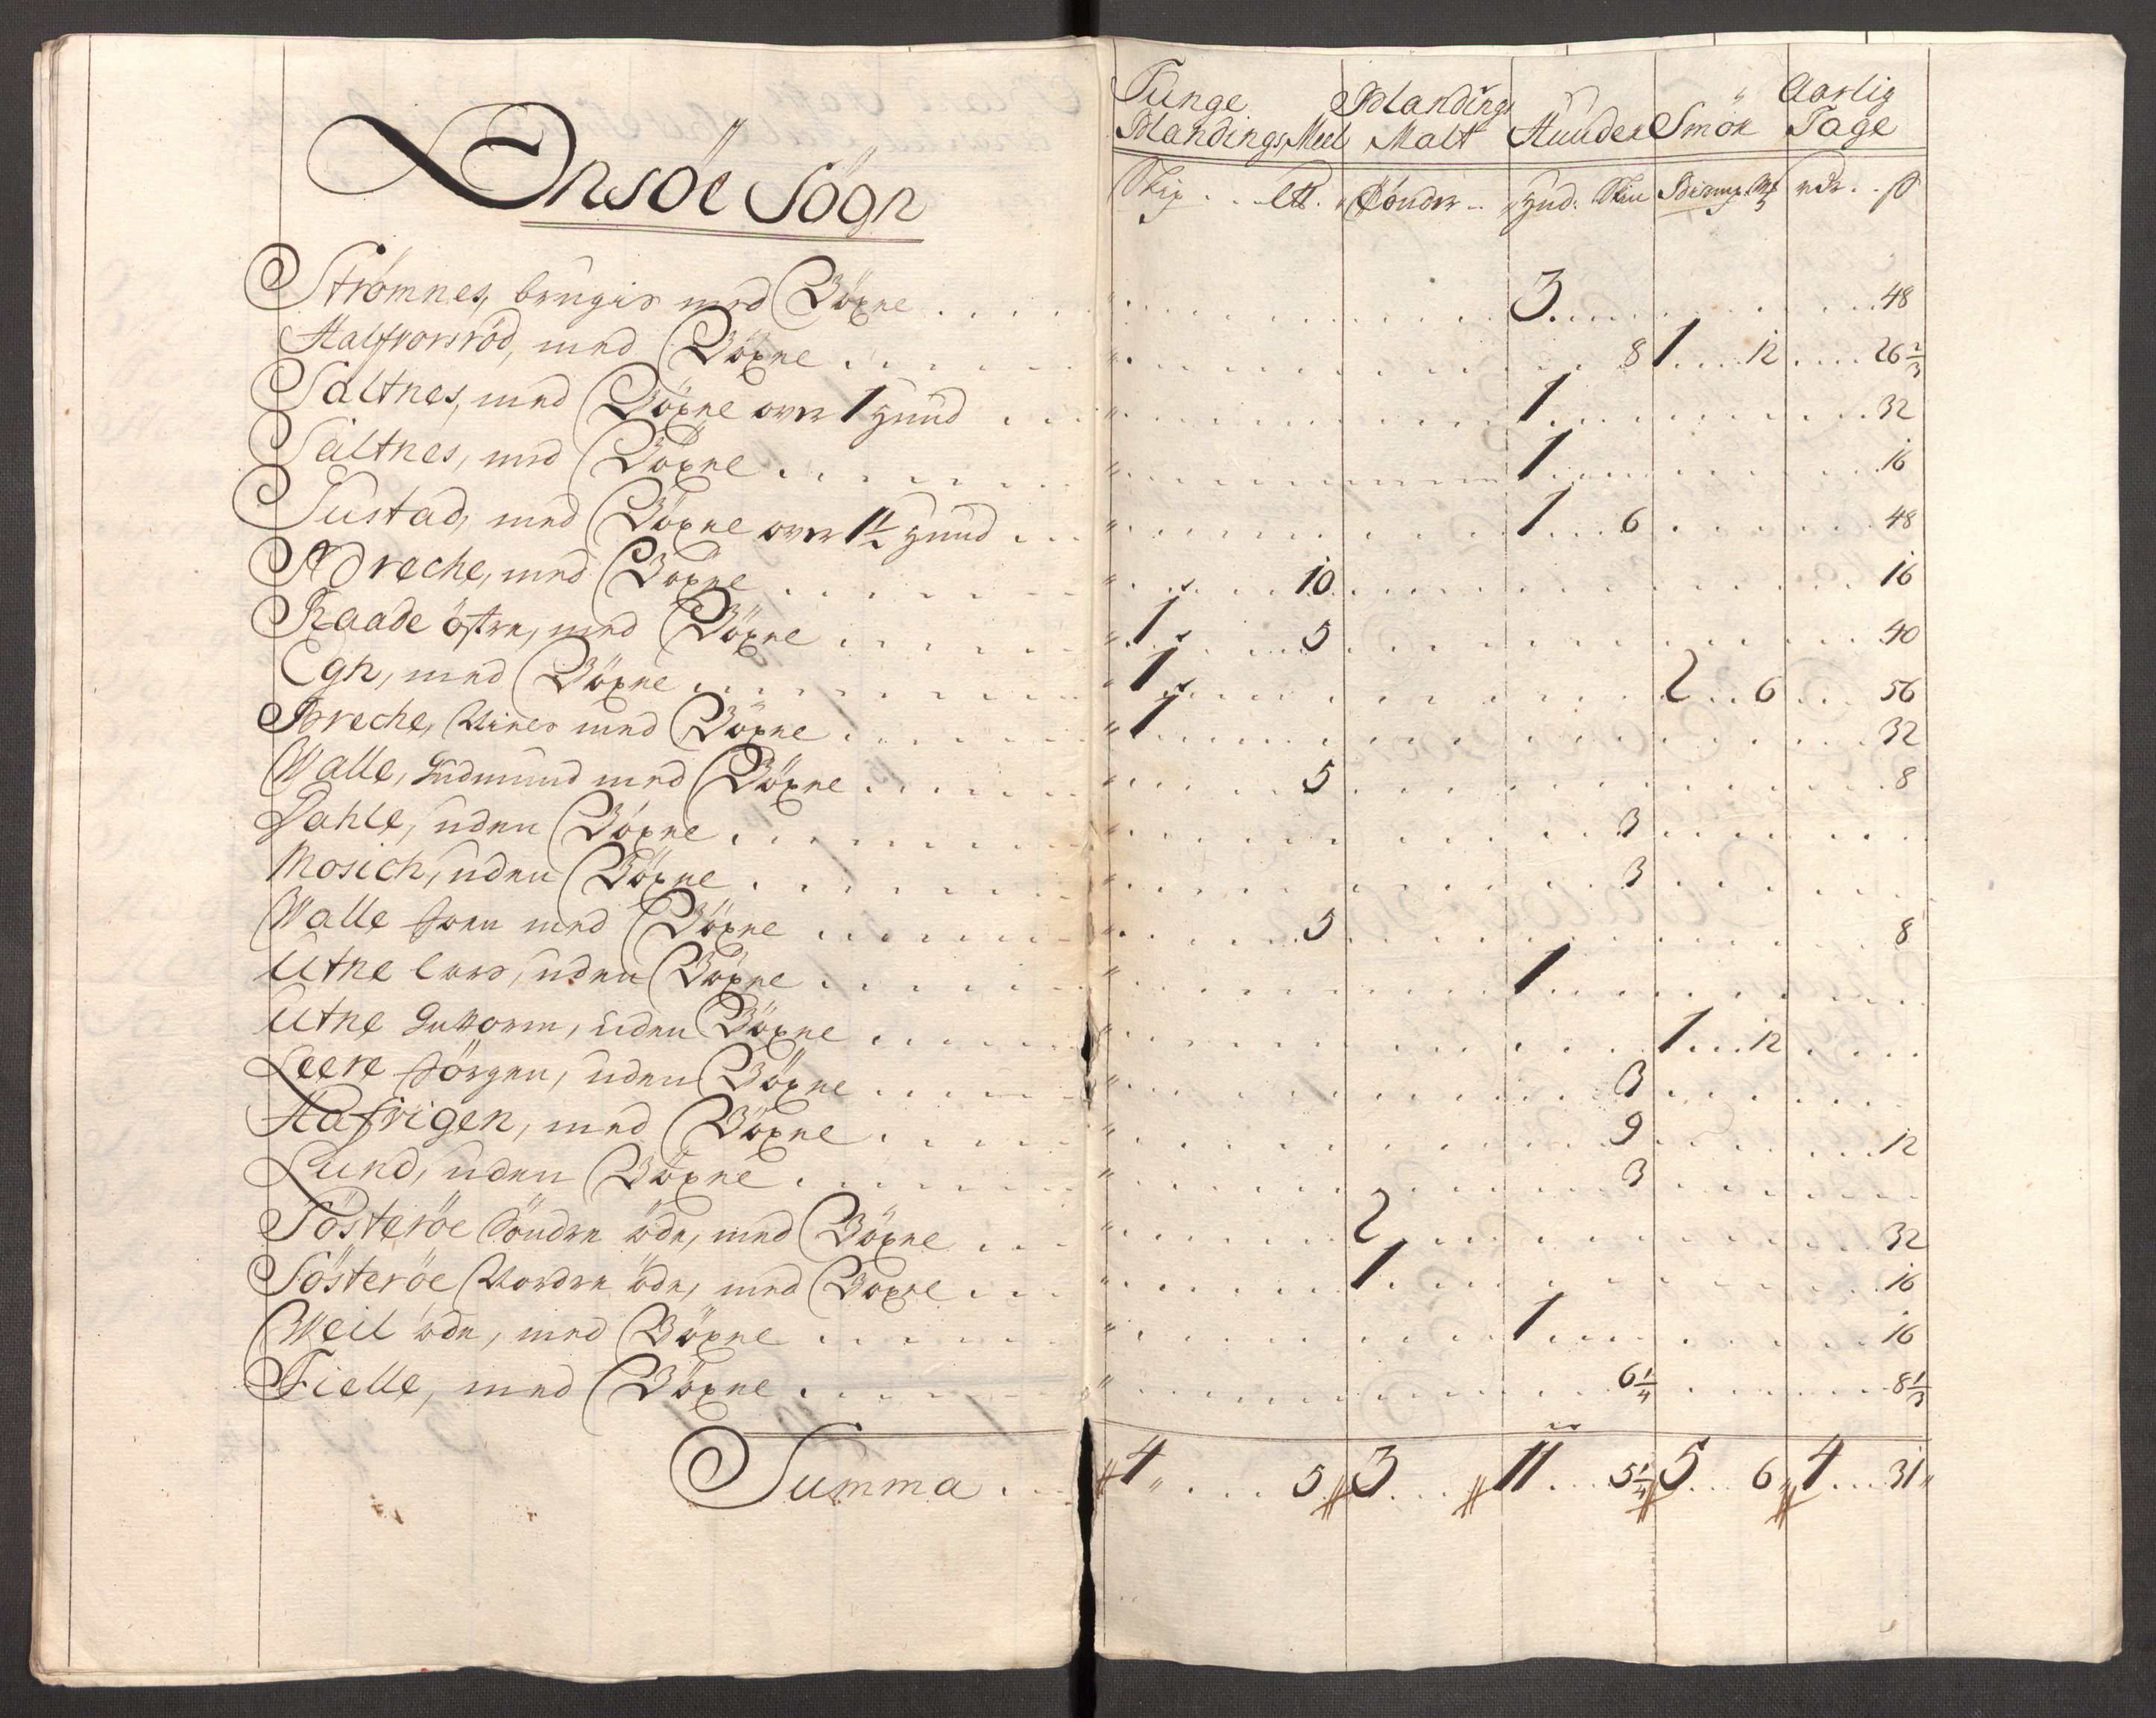 Onsöe Sögn
Tunge Blandings Meel
Blandings Malt
Huuder
Smör
Aarlig Tage
Skp . . L℔. Tönder . . Hud. Skin Bismrp. Mk rdr. . ß
Strømnes, brugis med Böxne . . . . 3 . . . 48
Halfvorsröd, med Böxne . . . . 8 1 . . . 12 . . . 26 2/3
Saltnes, med Böxne over 1 Hud . . . 1 . . . 32
Saltnes, med Böxne . . . . 1 . . . 16
Tustad, med Böxne over 1½ Hud . . . 1 . . 6 . . . 48
Ødreche, med Böxne . . . . 10 . . . 16
Raade östre, med Böxne . . . . 1 . . 5 . . . 40
Egh, med Böxne . . . . 1 . . . 2 . . 6 . . . 56
Breche, med Böxne . . . . 1 . . . 32
Walle, Gudmund med Böxne . . . . 5 . . . 8
Dahle, uden Böxne . . . . 3
Mosich, uden Böxne . . . . 3
Walle med Böxne . . . . 5 . . . 8
Utne Lars, uden Böxne . . . . 1
Utne Guttorm, uden Böxne . . . . 1 . . . 12
Leere Jörgen, uden Böxne . . . . 3
Hafrigen, med Böxne . . . . 9 . . . 12
Lund, uden Böxne . . . . 3
Sösteröe Söndre öde, med Böxne . . . 2 . . . 32
Sösteröe Nordre öde, med Böxne . . . 1 . . . 16
Weil öde, med Böxne . . . . 1 . . . 16
Fielle, med Böxne . . . . 6¼ . . . 8 1/3
Summa . . . 4 " . . . 5 3 . . . 11 . . . 5¼ 5 . . 6 " 4 . . . 31 "